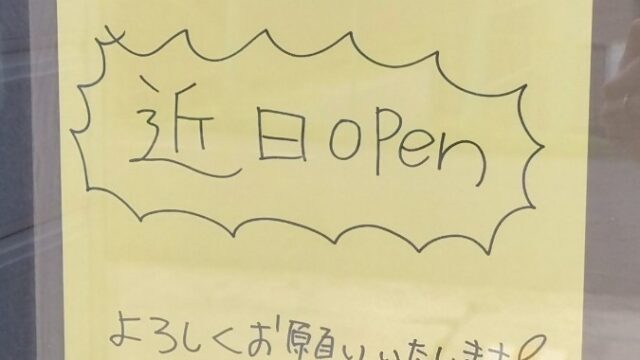 近日open
よろしくお願いいたします